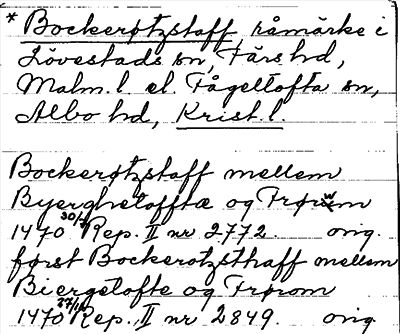 * Bockerøtzstaff råmärke i
Lövestads sn, Färs hd,
Malm. l. el. Fågeltofta sn,
Albo hd, Krist. l.
Bockerøtzstaff mellem
Byerghetofftæ og Frørwm
1470 30/ Rep. II nr 2772. orig.
først Bockerotzsthaff mellem
Biergetofte og Frørom
1470 27/ Rep. II nr 2849. orig.